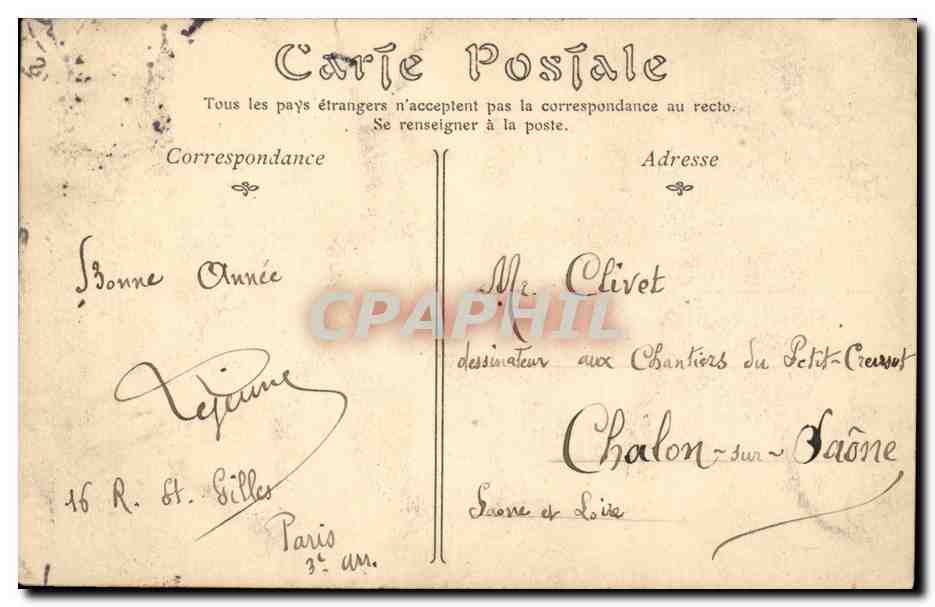 Carte Postale
Tous les pays étrangers n'acceptent pas la correspondance au recto.
Se renseigner à la poste.
Correspondance
Bonne Année
Lejeune
16 R. St. Gilles
Paris
3e arr.
Adresse
Mr. Clivet
dessinateur aux Chantiers du Petit-Creusot
Chalon-sur-Saône
Saone et Loire
CPAPHIL